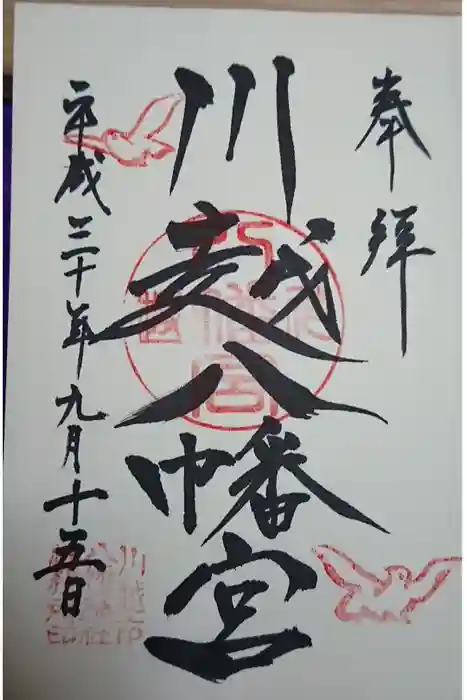 奉拝
川越八幡宮
平成三十年九月十五日